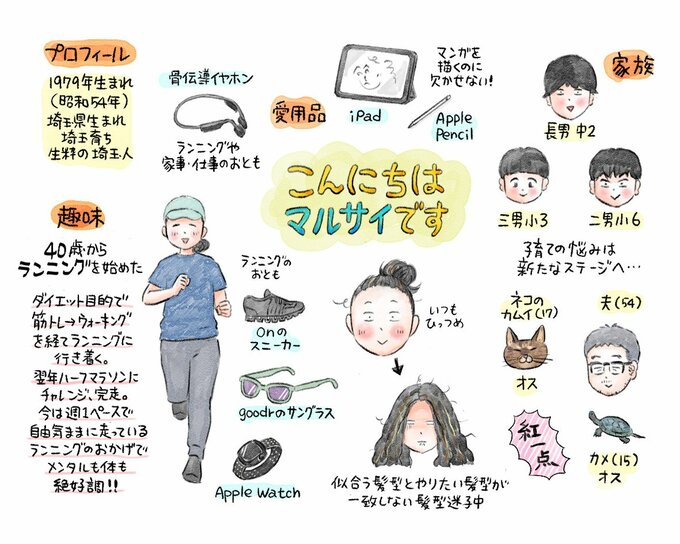 プロフィール
1979年生まれ
(昭和54年)
埼玉県生まれ
埼玉育ち
生粋の埼玉人
骨伝導イヤホン
ランニングや
家事・仕事のおとも
愛用品
マンガを
描くのに
欠かせない!
iPad
Apple
Pencil
家族
長男 中2
三男小3
二男小6
子育ての悩みは
新たなステージへ…
こんにちは
マルサイです
趣味
40歳から
ランニングを始めた
ダイエット目的で
筋トレ→ウォーキング
を経てランニングに
行き着く。
翌年ハーフマラソンに
チャレンジ、完走。
今は週1ペースで
自由気ままに走っている
ランニングのおかげで
メンタルも体も
絶好調!!
ランニングの
おとも
Onの
スニーカー
goodrのサングラス
Apple Watch
いつも
ひっつめ
似合う髪型とやりたい髪型が
一致しない髪型迷子中
ネコの
カムイ(17)
オス
夫(54)
紅一点
カメ(15)
オス